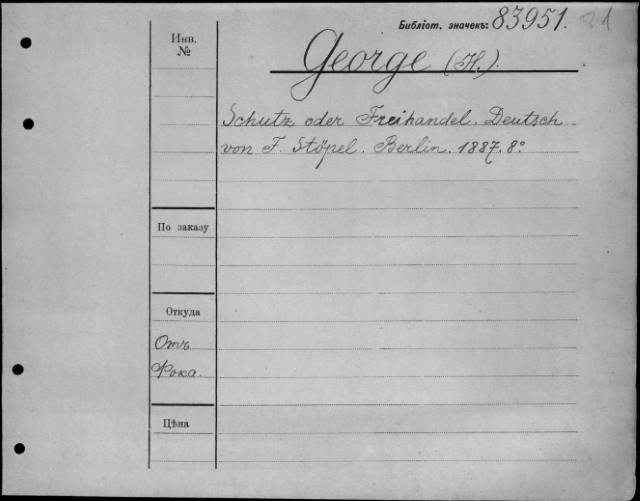 Библіот. значекъ: 83951.
Инв.
№
George (H.).
Schutz oder Freihandel. Deutsch
von F. Stöpel. Berlin. 1887. 8°
По заказу
Откуда
Отъ
Фока.
Цѣна